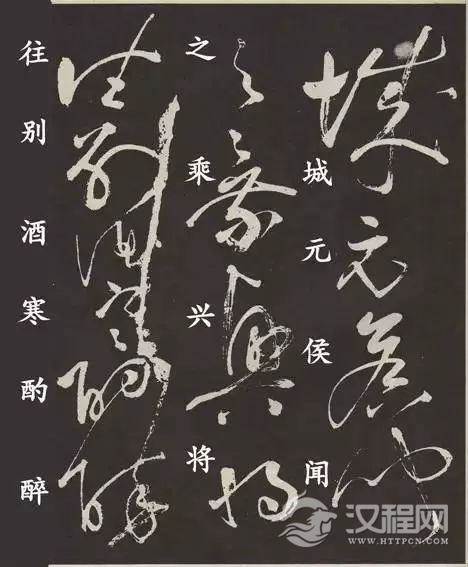 城元侯闻
之乘兴将
往别酒寒酌醉
汉程网
WWW.HTTPCN.COM